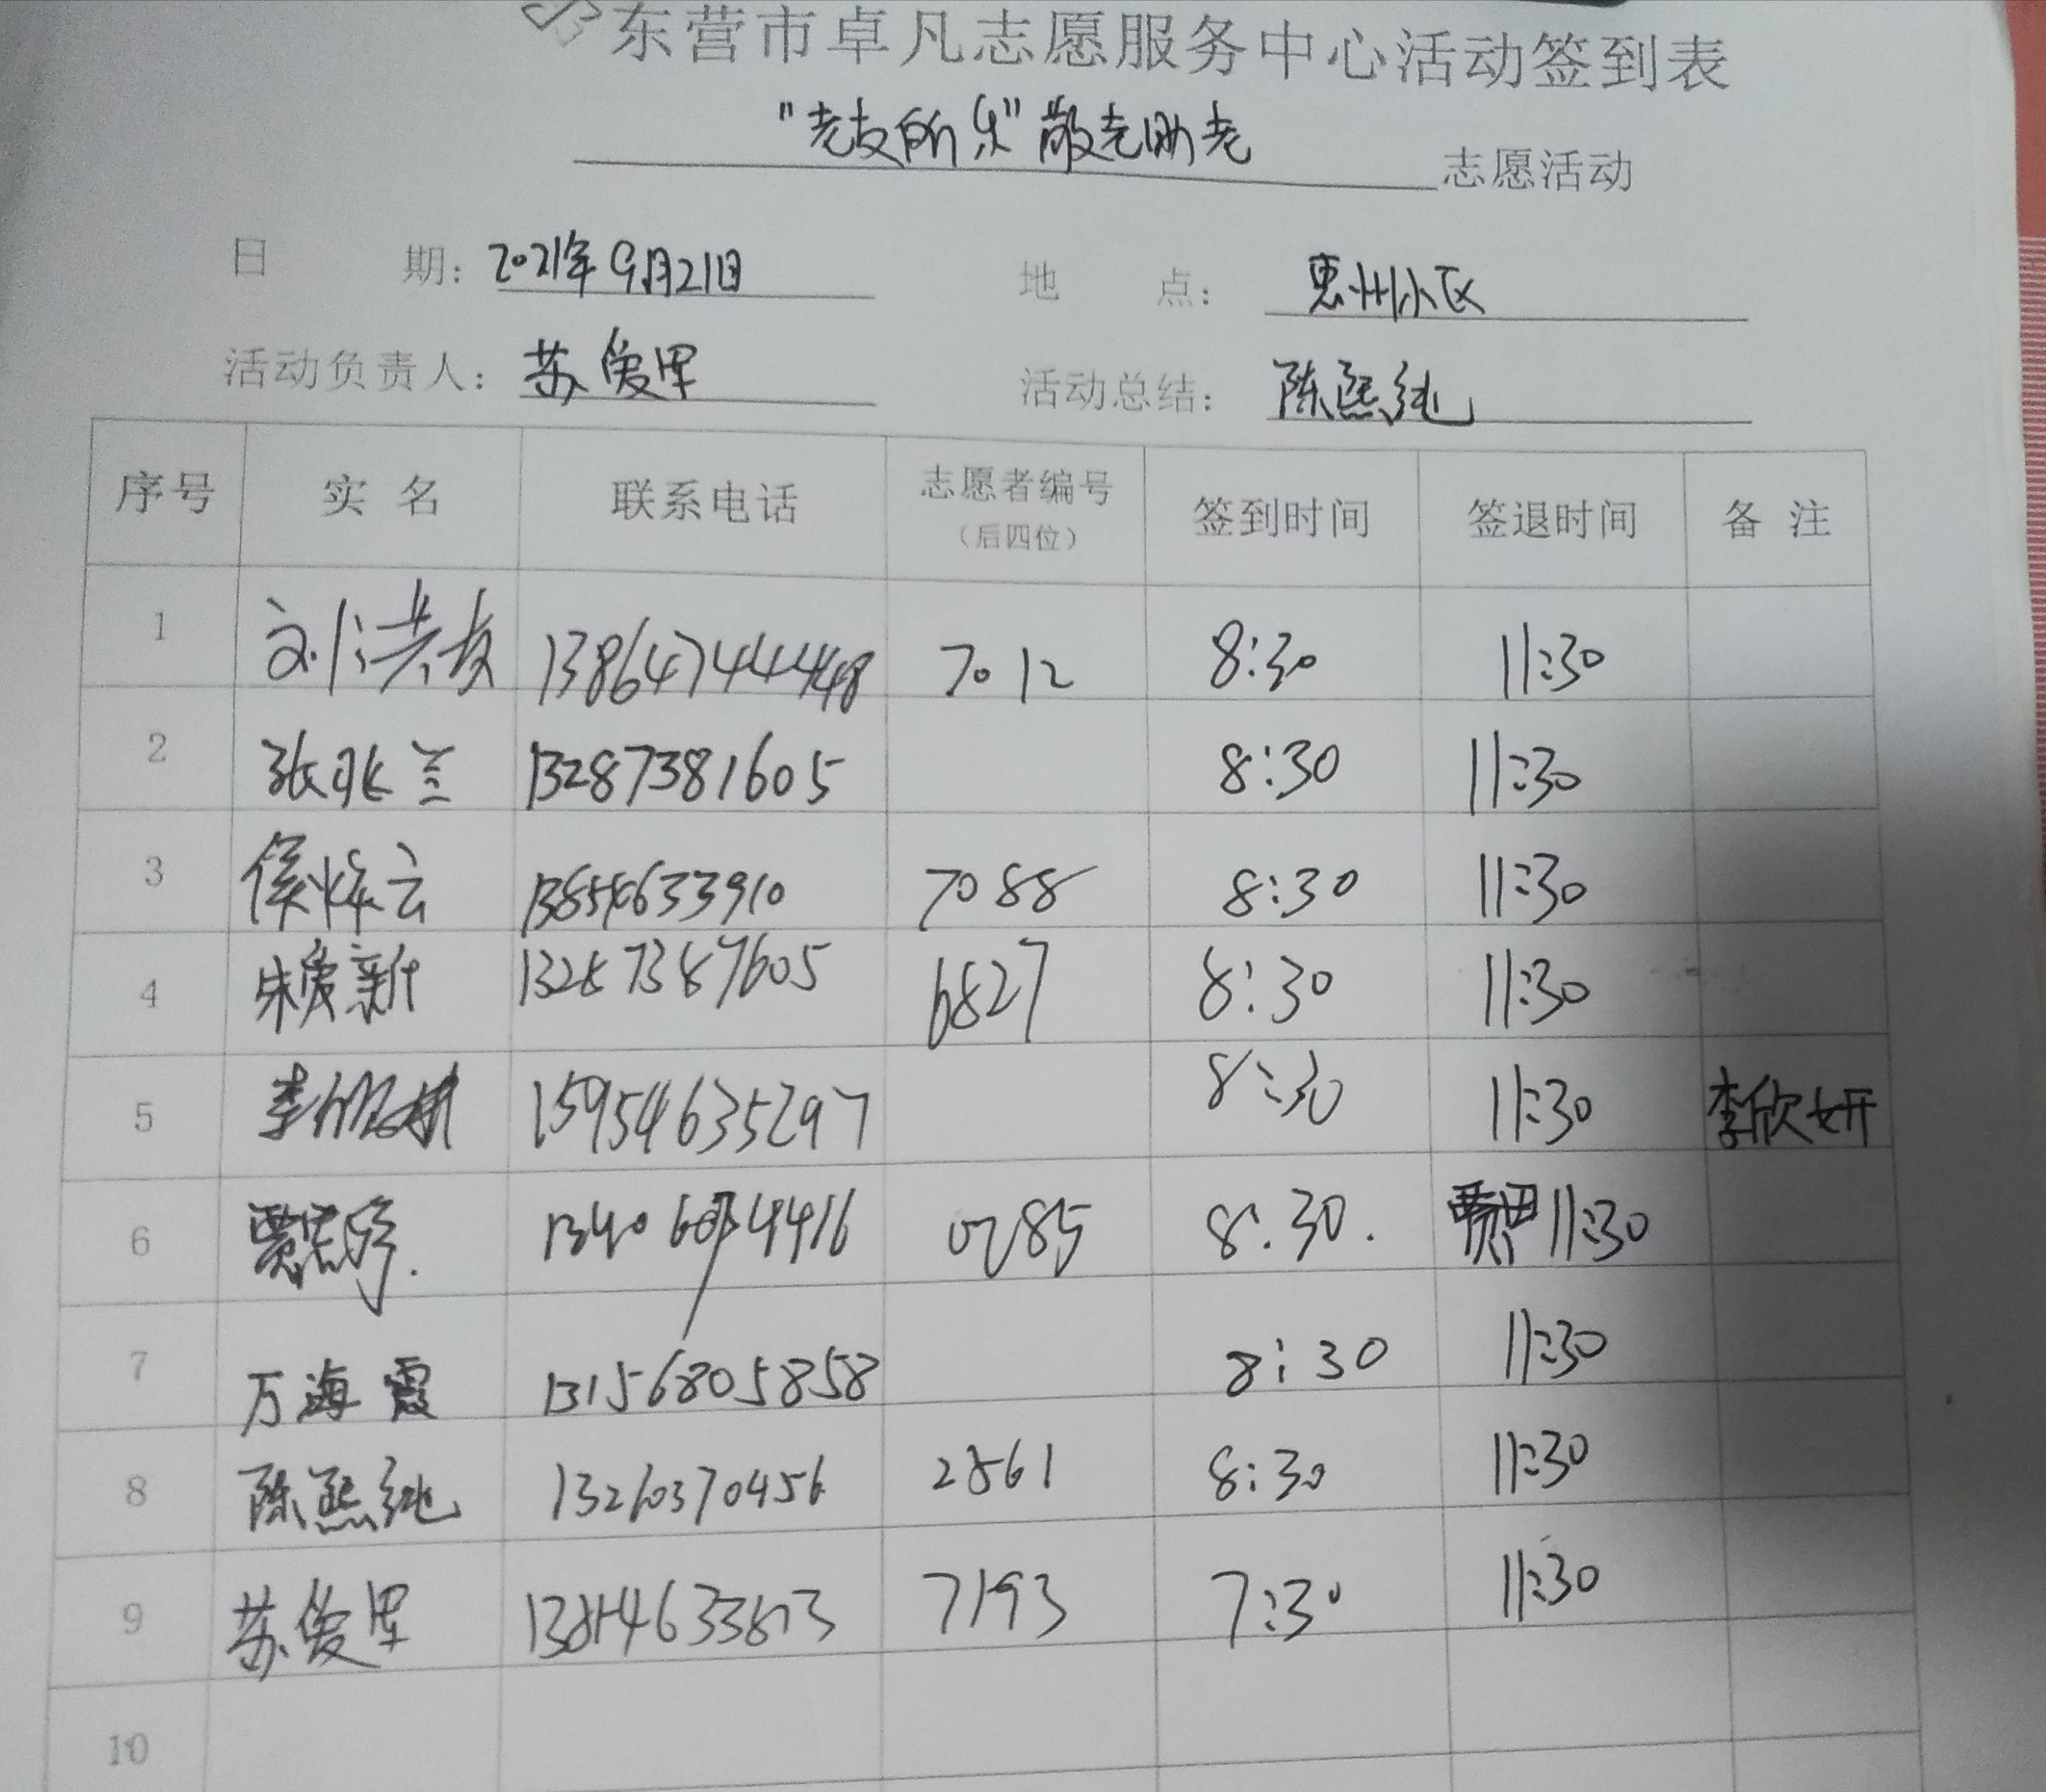 东营市卓凡志愿服务中心活动签到表
"老友所乐"敬老助老 志愿活动
日 期: 2021年9月21日 地 点: 惠州小区
活动负责人: 苏爱军 活动总结: 陈熙纯
序号 实 名 联系电话 志愿者编号 签到时间 签退时间 备 注
（后四位）
1 刘洪友 13864744448 7012 8:30 11:30
2 张兆兰 13287381605 8:30 11:30
3 侯焕云 13854633910 7088 8:30 11:30
4 朱爱新 13287387605 6827 8:30 11:30
5 15954635297 8:30 11:30 李欣妍
6 0285 8:30. 11:30
7 万海霞 13156805858 8:30 11:30
8 陈熙纯 13260370456 2861 8:30 11:30
9 苏爱军 7193 7:30 11:30
10